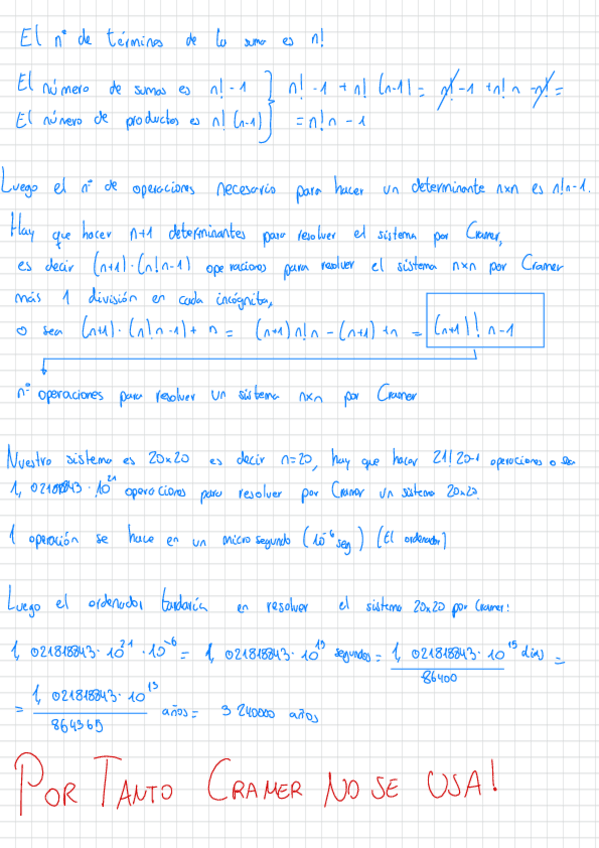 El nº de términos de la suma es n!
El número de sumas es n! - 1 } n! - 1 + n! (n-1) = n! - 1 + n! n - n! =
El número de productos es n! (n-1) } = n! n - 1
Luego el nº de operaciones necesario para hacer un determinante nxn es n!n-1.
Hay que hacer n+1 determinantes para resolver el sistema por Cramer,
es decir (n+1)·(n!n-1) operaciones para resolver el sistema nxn por Cramer
más 1 división en cada incógnita,
o sea (n+1)·(n!n-1)+n = (n+1)n!n-(n+1)+n = (n+1)! n-1
nº operaciones para resolver un sistema nxn por Cramer
Nuestro sistema es 20x20 es decir n=20, hay que hacer 21!20-1 operaciones o sea
1, 021818843 · 10^21 operaciones para resolver por Cramer un sistema 20x20.
1 operación se hace en un microsegundo (10^-6 seg) (El ordenador)
Luego el ordenador tardaría en resolver el sistema 20x20 por Cramer:
1, 021818843 · 10^21 · 10^-6 = 1, 021818843 · 10^15 segundos = 1, 021818843 · 10^15 días =
86400
= 1, 021818843 · 10^15 años = 3 240000 años
864365
POR TANTO CRAMER NO SE USA!